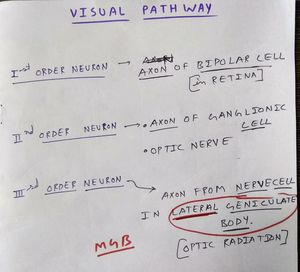 VISUAL PATHWAY
Ist ORDER NEURON → AXON OF BIPOLAR CELL
[in RETINA]
IInd ORDER NEURON → • AXON OF GANGLIONIC CELL
• OPTIC NERVE
IIIrd ORDER NEURON → AXON FROM NERVECELL
IN LATERAL GENICULATE
BODY.
MGB
[OPTIC RADIATION]